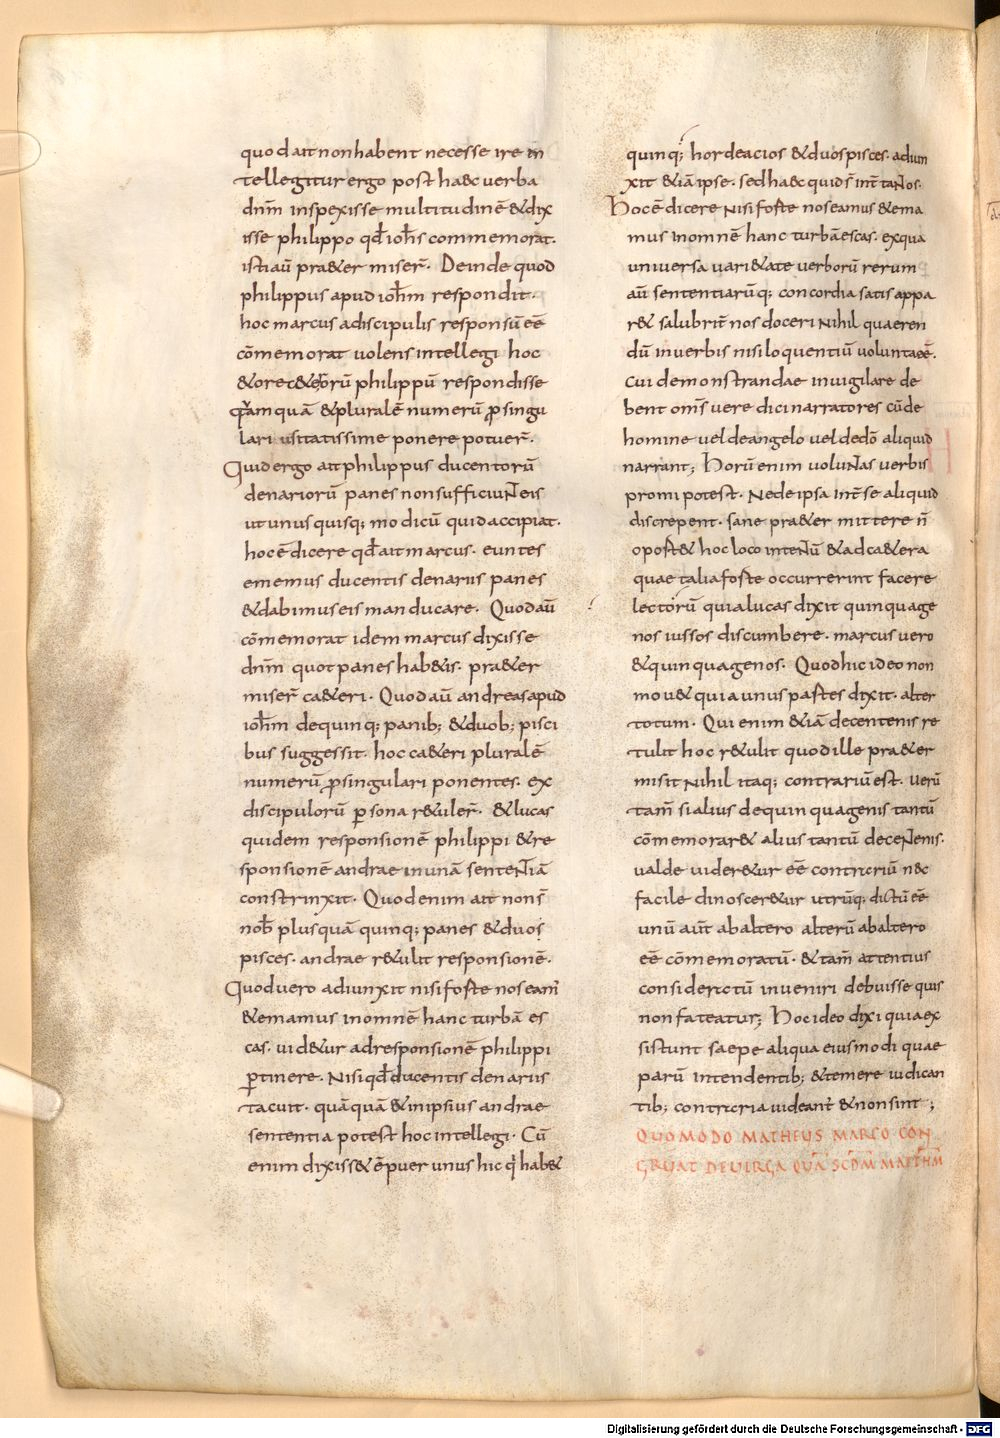 quod ait non habent necesse ire in
tellegitur ergo post haec uerba
dnm̄ inspexisse multitudinē & dix
isse philippo qđ ioh̄s commemorat·
isti aū pra&er miser̄· Deinde quod
philippus apud ioh̄m respondit·
hoc marcus a discipulis responsū eē
cōmemorat uolens intellegi hoc
& ore c&erorū philippū respondisse
quāquā & pluralē numerū ꝓ singu
lari usitatissime ponere potuer̄·
Quid ergo ait philippus ducentorū
denariorū panes non sufficiunt eis
ut unus quisq; modicū quid accipiat·
hoc ē dicere qđ ait marcus· euntes
ememus ducentis denariis panes
& dabimus eis manducare· Quod aū
cōmemorat idem marcus dixisse
dnm̄ quot panes hab&is· pra&er
miser̄ ca&eri· Quod aū andreas apud
ioh̄m de quinq; panib; & duob; pisci
bus suggessit· hoc ca&eri pluralē
numerū ꝓ singulari ponentes· ex
discipulorū ꝑsona r&uler̄· & lucas
quidem responsionē philippi & re
sponsionē andrae in unā sententiā
constrinxit· Quod enim ait non s̄
nob̄ plus quā quinq; panes & duos
pisces· andrae r&ulit responsionē·
Quod uero adiunxit nisi forte nos eam'
& emamus in omnē hanc turbā es
cas· uid&ur ad responsionē philippi
ꝑtinere· Nisi qđ ducentis denariis
tacuit· quāquā & in ipsius andrae
sententia potest hoc intellegi· Cū
enim dixiss& ē puer unus hic q' hab&
quinq; hordeacios & duos pisces· adiun
xit & iā ipse· sed haec quid s̄ int̄ tantos·
Hoc ē dicere nisi forte nos eamus & ema
mus in omnē hanc turbā escas· ex qua
uniuersa uari&ate uerborū rerum
aū sententiarūq; concordia satis appa
r& salubrit̄ nos doceri nihil quaeren
dū in uerbis nisi loquentiū uoluntatē·
Cui demonstrandae inuigilare de
bent om̄s uere dici narratores cū de
homine uel de angelo uel de dō aliquid
narrant; Horū enim uoluntas uerbis
promi potest· Ne de ipsa int̄ se aliquid
discrepent· sane pra&er mittere n̄
oport& hoc loco intentū & ad ca&era
quae talia forte occurrerint facere
lectorū quia lucas dixit quinquage
nos iussos discumbere· marcus uero
& quinquagenos· Quod hic ideo non
mou& quia unus partes dixit· alter
totum· Qui enim & iā de centenis re
tulit hoc r&ulit quod ille pra&er
misit Nihil itaq; contrariū est· Uerū
tam̄ si alius de quinquagenis tantū
cōmemorar& alius tantū de centenis·
ualde uider&ur eē contrariū nec
facile dinoscer&ur utrūq; dictū eē
unū aūt ab altero alterū ab altero
eē cōmemoratū· & tam̄ attentius
consideratū inueniri debuisse quis
non fateatur; Hoc ideo dixi quia ex
sistunt saepe aliqua eiusmodi quae
parū intendentib; & temere iudican
tib; contraria uideant' & non sint;
QUOMODO MATHEUS MARCO CON
GRUAT DE UIRGA QUĀ SCDM MATTHM
Digitalisierung gefördert durch die Deutsche Forschungsgemeinschaft - DFG